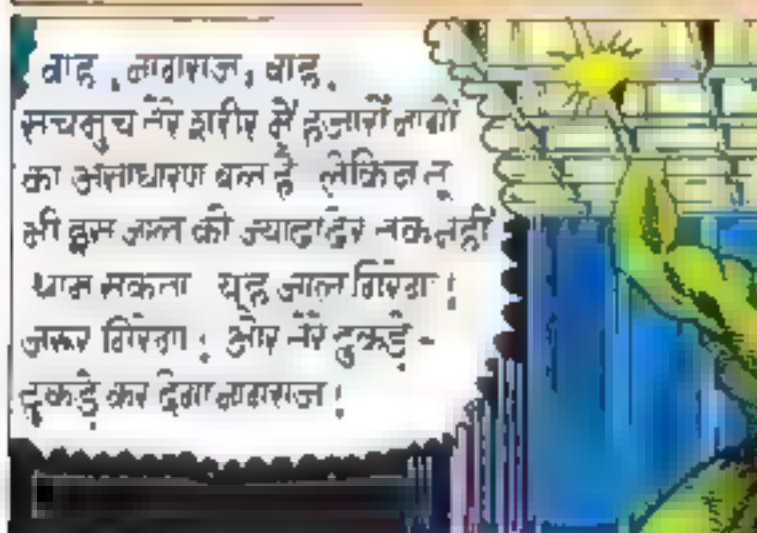 वाह, नागराज, वाह.
सचमुच तेरे शरीर में हजारों नागों
का असाधारण बल है लेकिन तू
भी इस जाल को ज्यादा देर तक नहीं
थाम सकता यह जाल गिरेगा!
जरूर गिरेगा! और तेरे टुकड़े-
टुकड़े कर देगा नागराज!